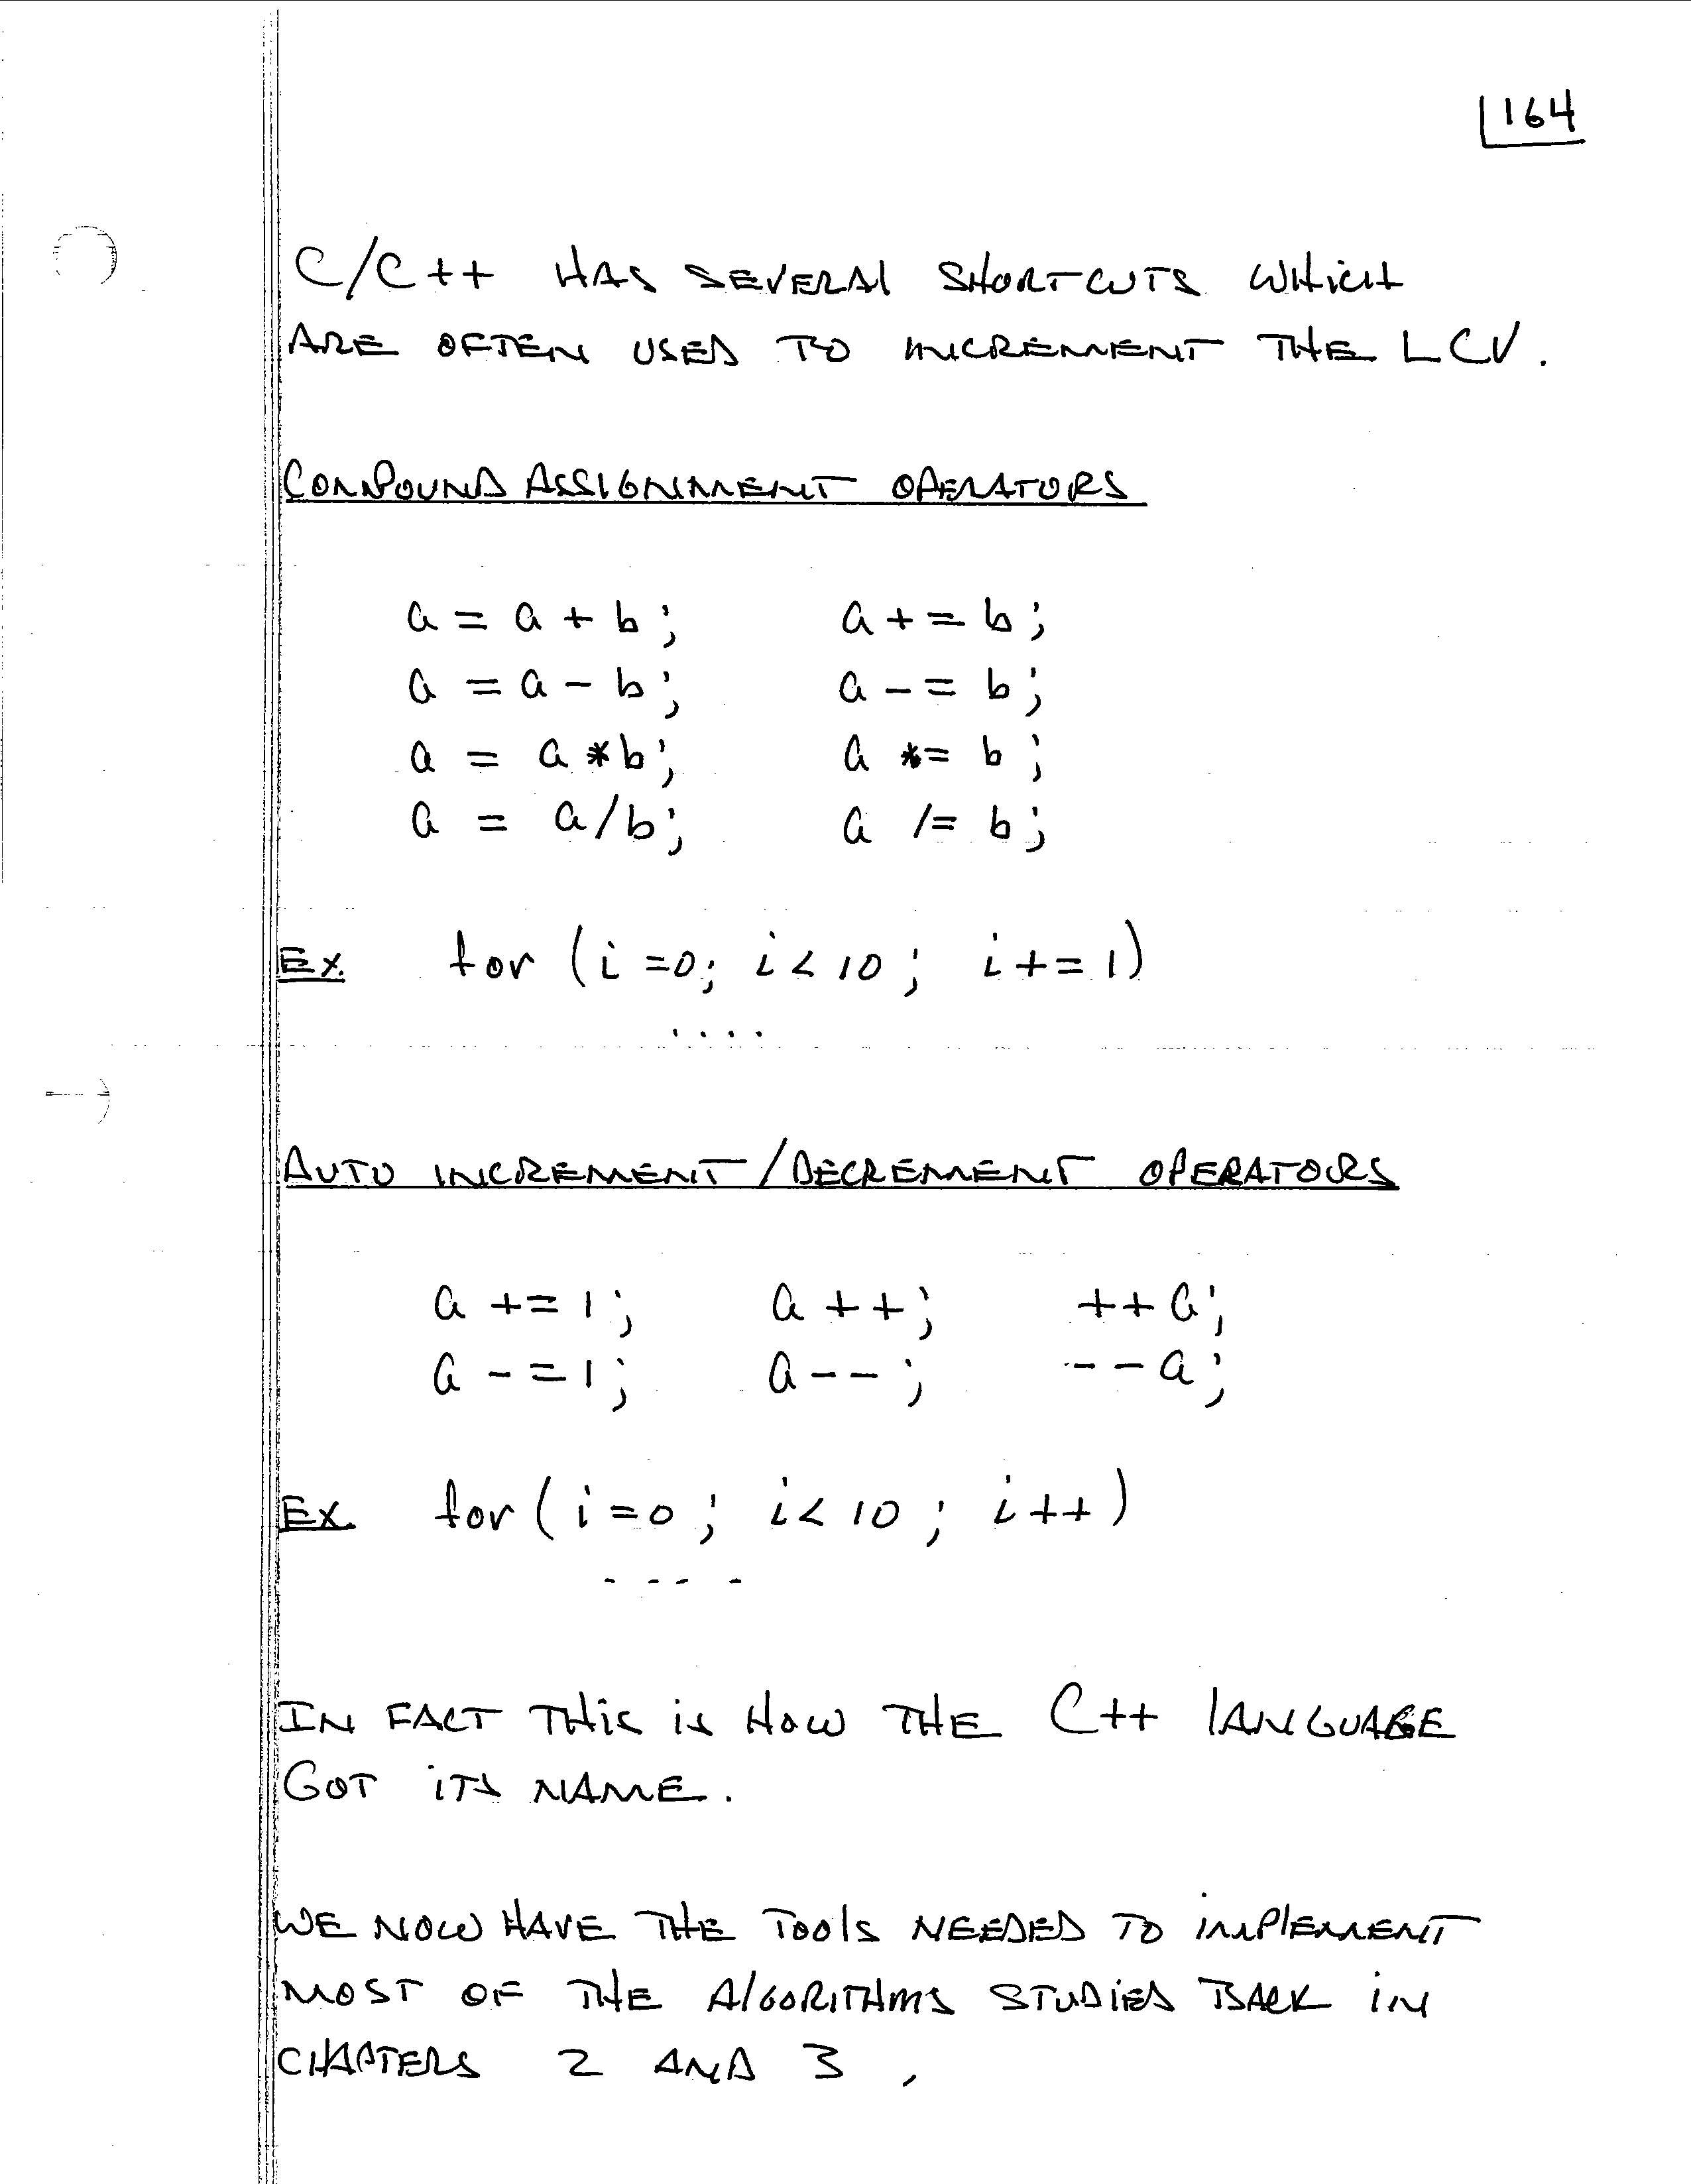 164
C/C++ HAS SEVERAL SHORTCUTS WHICH
ARE OFTEN USED TO INCREMENT THE LCV.
COMPOUND ASSIGNMENT OPERATORS
a = a + b; a += b;
a = a - b; a -= b;
a = a * b; a *= b;
a = a / b; a /= b;
Ex. for (i=0; i<10; i+=1)
....
AUTO INCREMENT/DECREMENT OPERATORS
a +=1; a++; ++a;
a -=1; a--; --a;
Ex. for (i=0; i<10; i++)
----
IN FACT THIS IS HOW THE C++ LANGUAGE
GOT ITS NAME.
WE NOW HAVE THE TOOLS NEEDED TO IMPLEMENT
MOST OF THE ALGORITHMS STUDIED BACK IN
CHAPTERS 2 AND 3.